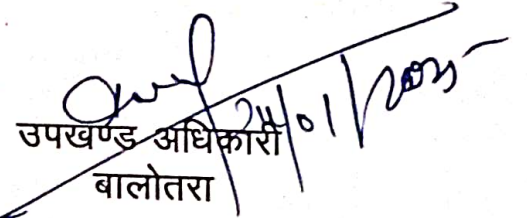 24/01/2025
उपखण्ड अधिकारी
बालोतरा